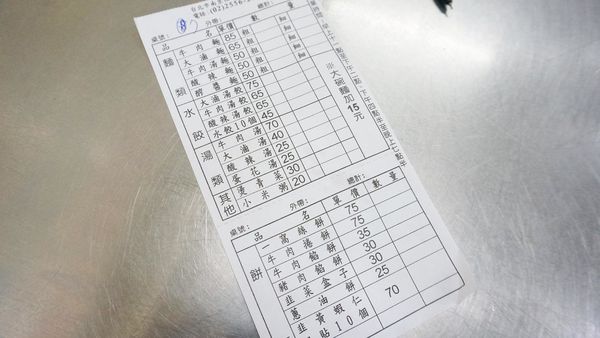 電話 (02)2556-
桌號： 外帶： 總計：
品 名 單價 數 量
麵類
牛肉麵 85 粗 細
大滷麵 65 粗 細
牛肉湯麵 50 粗 細
酸辣麵 50 粗 細
醡醬麵 50 粗
水餃
大滷湯餃 75
牛肉湯餃 65
酸辣湯餃 65
水餃10個 45
湯類
牛肉湯 70
大滷湯 40
酸辣湯 25
蛋花湯 25
其他
燙青菜 30
小米粥 20
※大碗麵加15元
點至下午二點、下午四點半至晚上七點半
桌號： 外帶： 總計：
品 名 單價 數量
餅
一窩絲餅 75
牛肉捲餅 75
牛肉餡餅 35
豬肉餡餅 30
韭菜盒子 30
蔥油餅 25
韭黃蝦仁
貼10個 70